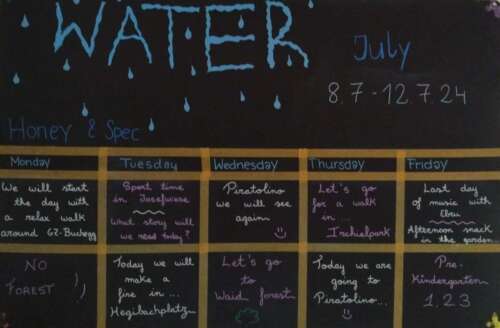 WATER
July
8.7-12.7.24
Honey & Spec
Monday
Tuesday
Wednesday
Thursday
Friday
We will start
the day with
a relax walk
around GZ-Buchegg
Sport time
in Josefwiese
What story will
we need today?
Piratolino
we will see
again
Let's go
for a walk
in ...
Irchelpark
Last day
of music with
Ebru
Afternoon snack
in the garden
NO
FOREST
Today we will
make a
fire in ...
Hegibachplatz
Let's go
to
Waid forest
Today we are
going to
Piratolino...
Pre-
Kindergarten
1, 2, 3